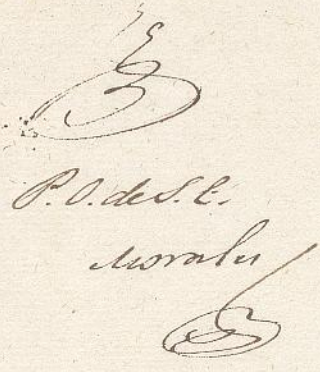 P. O. de S. E.
Morales